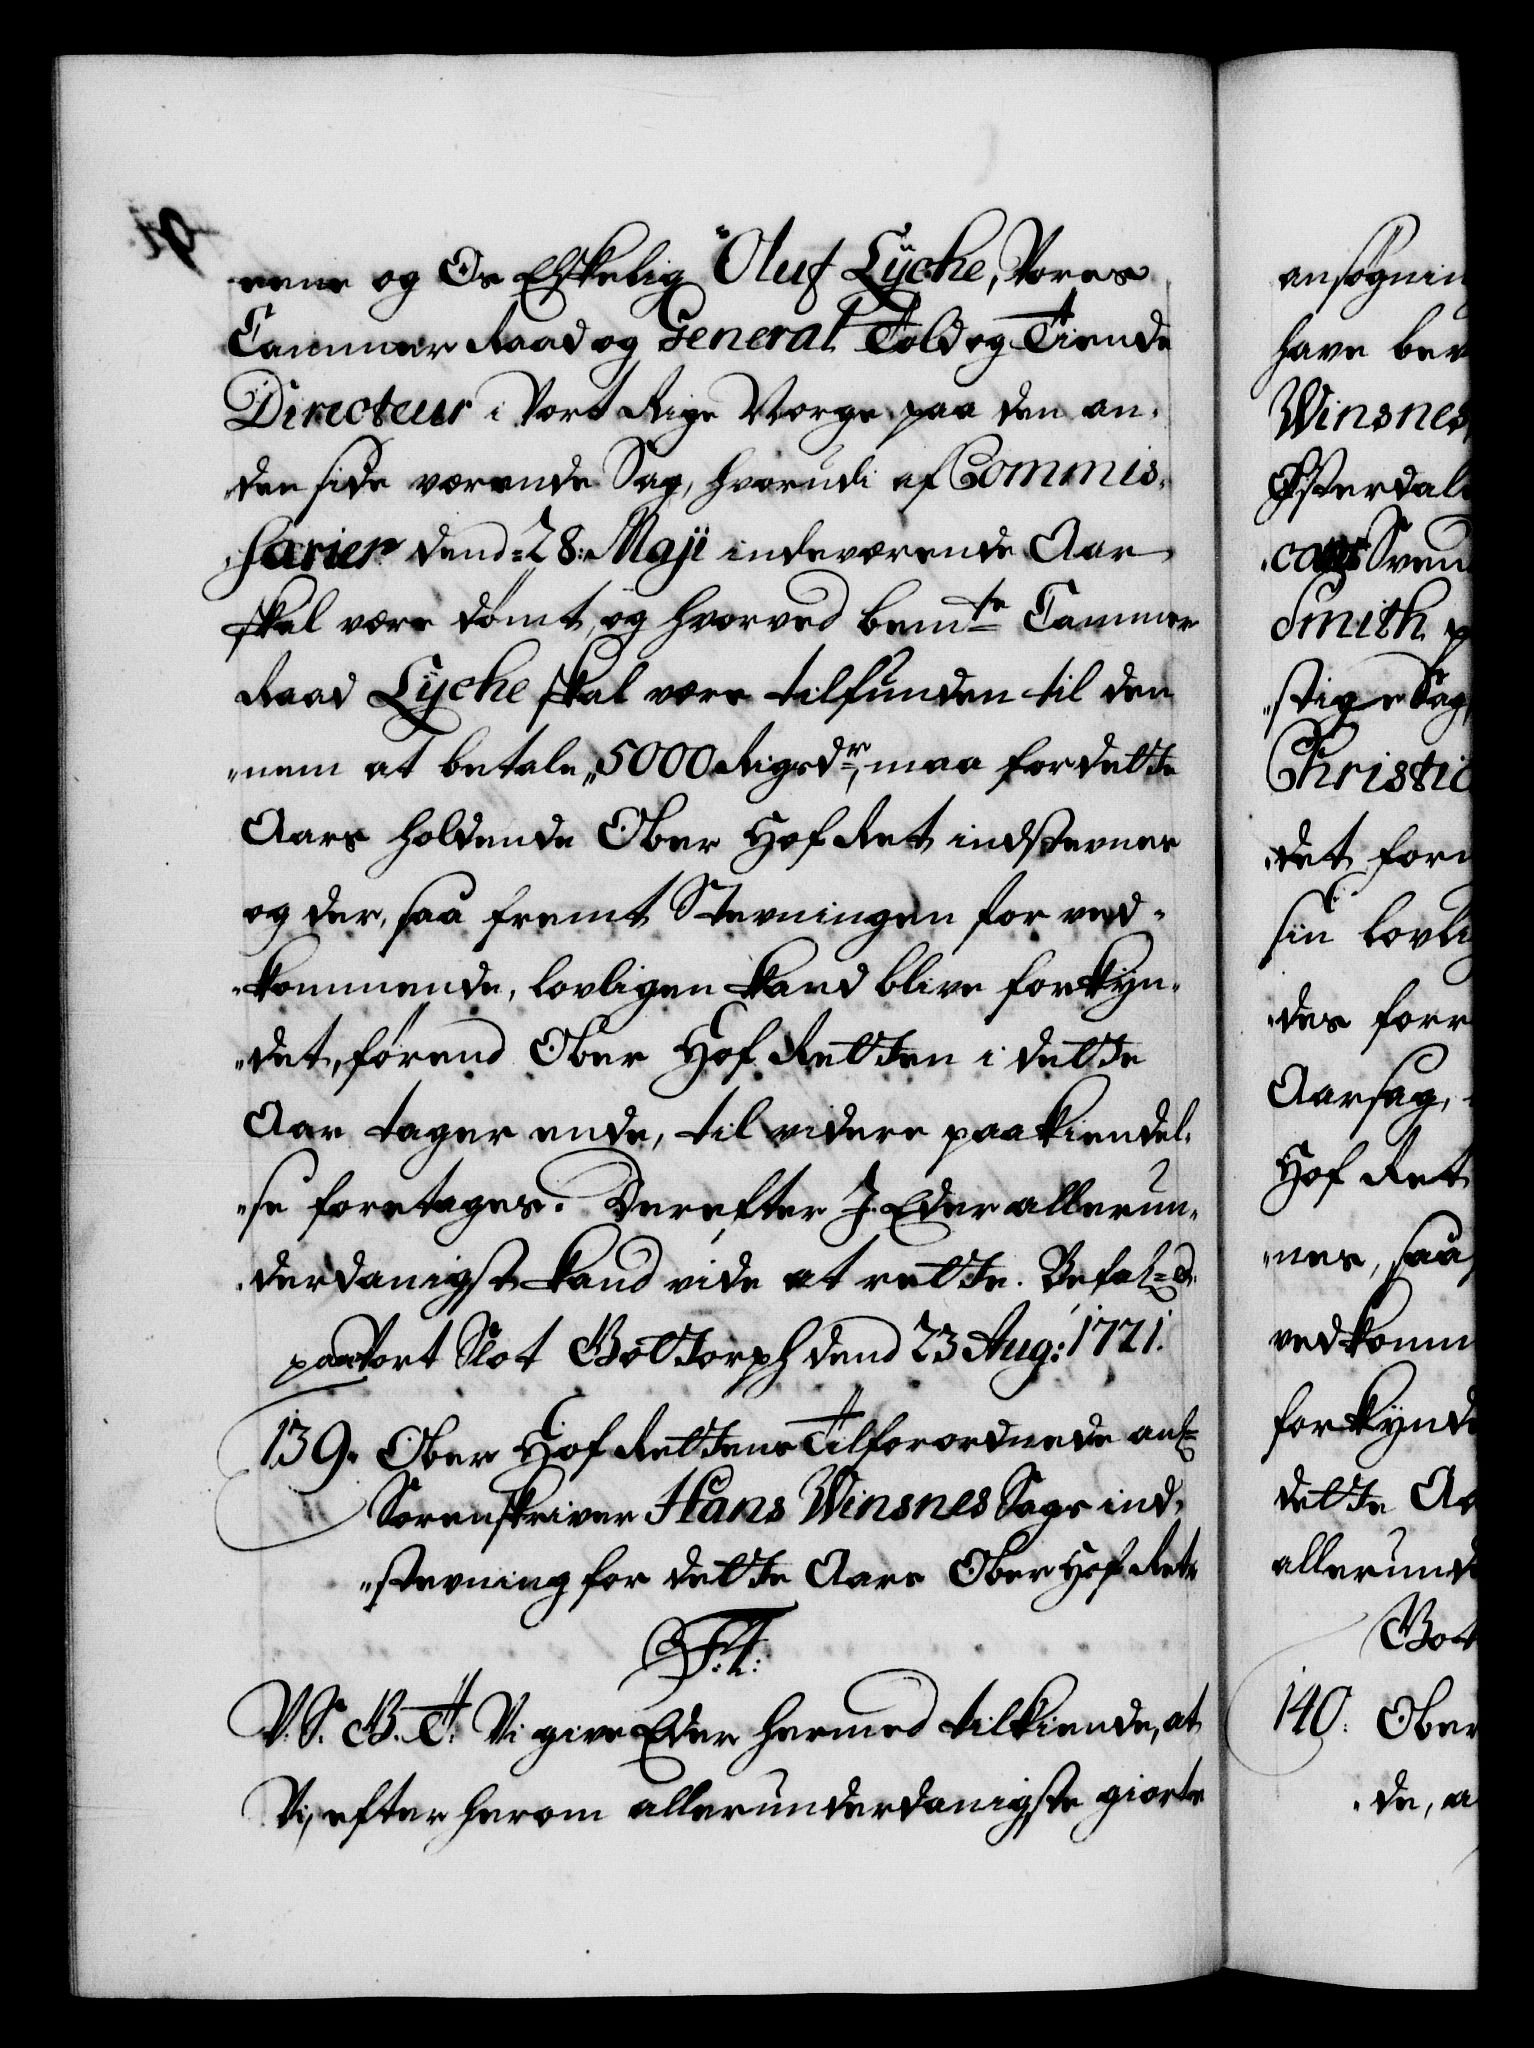 eene og Os Elskelig Oluf Lÿche, Vores
Cammer Raad og General Told og Tiende
Directeur i Vort Rige Norge paa den an,
den side værende Sag, hvorudi af Commis,
,sarier dend 28: Maji indeværende Aar
skal være dømt, og hvorved bemte Cammer
Raad Lÿche skal være tilfunden til den
"nem at betale 5000 Rigsdr, maa for dette
Aars holdende Ober Hof Ret indstevnes
og der, saa fremt Stevningen for ved,
"kommende, lovligen kand blive forkyn,
"det, førend Ober Hof Retten i dette
Aar tager ende, til videre paakiendel,
"se foretages. Derefter I Eder allerun,
,derdanigst kand vide at rette. Befal: d.
paa Vort Slot Gottorph dend 23 Aug: 1721.
139. Ober Hof Rettens Tilforordnede anl:
Sorenskriver Hans Winsnes Sags ind,
"stevning for dette Aars Ober Hof Ret
F. 4:
V. S. G. T. Vi give Eder hermed tilkiende, at
Vi, efter herom allerunderdanigste giorte
ansøgnin
have bev
Winsnes
Østerdal
Svend
Smith p
"stige Sag
Christi
det for
sin lovli
des forr
Aarsag,
Hof Ret
"nes, saa
vedkomm
forkynd
dette Aa
allerund
Got
140. Ober
de, a